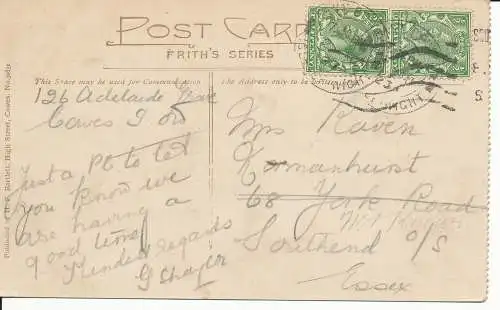 POST CARD
FRITH'S SERIES
This Space may be used for Communication
The Address only to be Written
126 Adelaide Grove
Cowes I OW
Just a PC to let
you know we
are having a
good time
Kindest regards
G Shafer
Mrs Raven
68 York Road
Southend o/S
Essex
Published by H. R. Bartlett, High Street, Cowes.
WIGHT
WIGHT